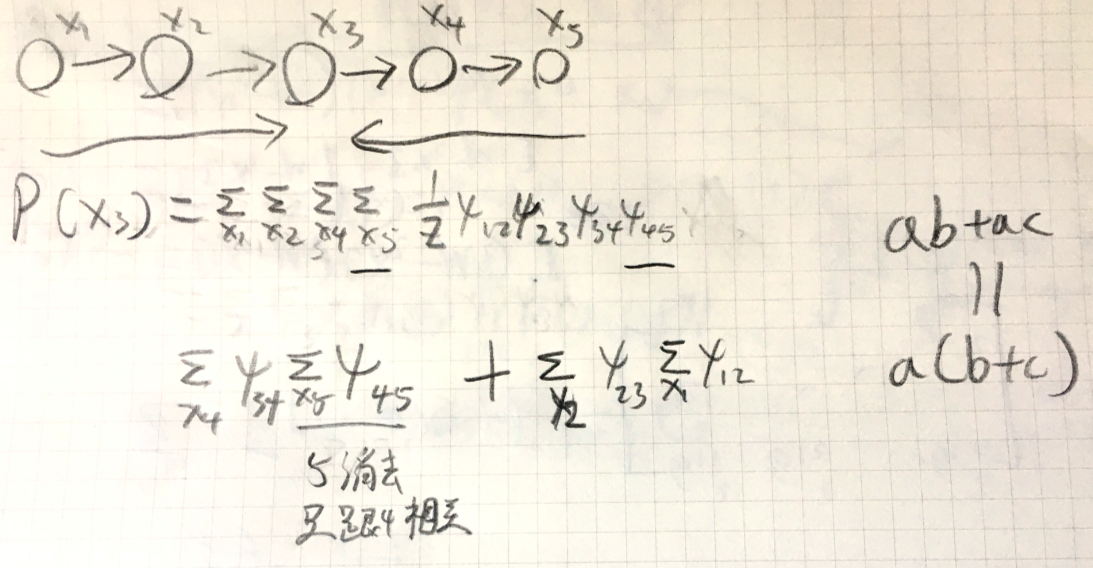 x₁ x₂ x₃ x₄ x₅
○→○→○→○→○
P(x₃) = Σ_{x₁} Σ_{x₂} Σ_{x₄} Σ_{x₅} 1/Z ψ₁₂ψ₂₃ψ₃₄ψ₄₅
ab+ac
||
a(b+c)
Σ_{x₄} ψ₃₄ Σ_{x₅} ψ₄₅ + Σ_{x₂} ψ₂₃ Σ_{x₁} ψ₁₂
5消去
只跟4相关